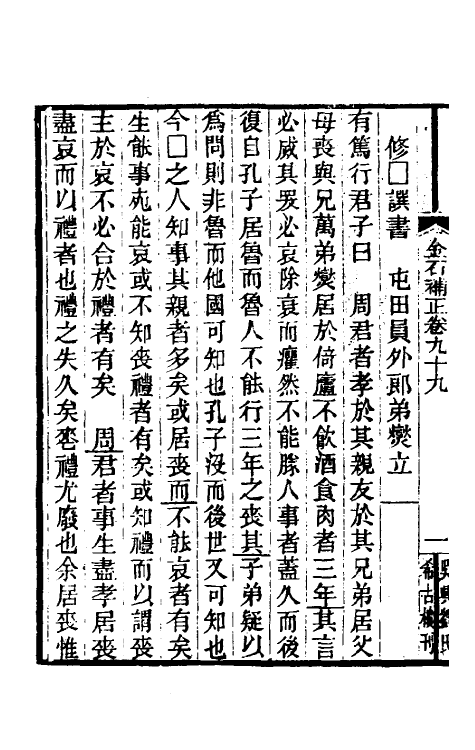 金石補正卷九十九
一
吳興劉氏
希古樓刊
修□譔書　屯田員外郎弟爕立
有篤行君子曰　周君者孝於其親友於其兄弟居父
母喪與兄萬弟爕居於倚廬不飲酒食肉者三年其言
必戚其哭必哀除衰而癯然不能勝人事者蓋久而後
復自孔子居魯而魯人不能行三年之喪其子弟疑以
爲問則非魯而他國可知也孔子沒而後世又可知也
今□之人知事其親者多矣或居喪而不能哀者有矣
生能事死能哀或不知喪禮者有矣或知禮而以謂喪
主於哀不必合於禮者有矣　周君者事生盡孝居喪
盡哀而以禮者也禮之失久矣喪禮尤廢也余居喪惟